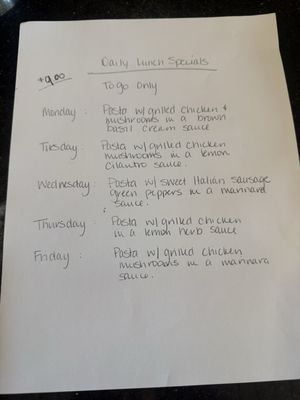 Daily Lunch Specials
$9.00
To go only
Monday: Pasta w/ grilled chicken &
mushrooms in a brown
basil cream sauce
Tuesday: Pasta w/ grilled chicken
mushrooms in a lemon
cilantro sauce.
Wednesday: Pasta w/ sweet Italian sausage
green peppers in a marinara
sauce.
Thursday: Pasta w/ grilled chicken
in a lemon herb sauce
Friday: Pasta w/ grilled chicken
mushrooms in a marinara
sauce.